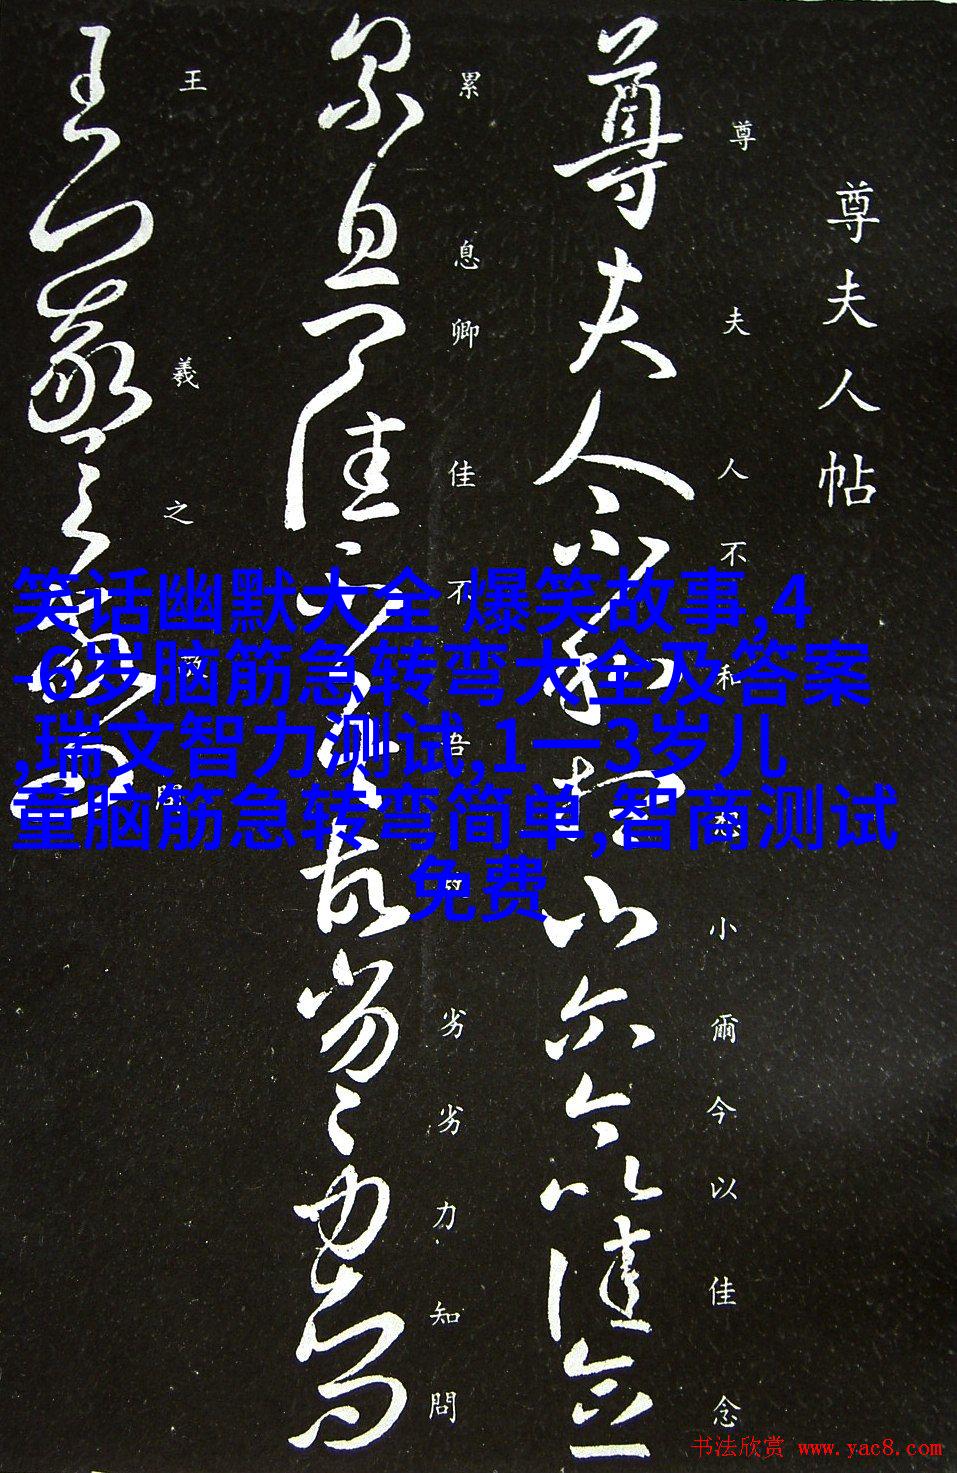 尊夫人帖
尊夫人不和想小爾今以佳念
累息卿佳不吾故劣劣力知問
王羲之敬
笑话幽默大全 爆笑故事,4
-6岁脑筋急转弯大全及答案
,瑞文智力测试,1一3岁儿
童脑筋急转弯简单,智商测试
免费
书法欣赏 www.yac8.com